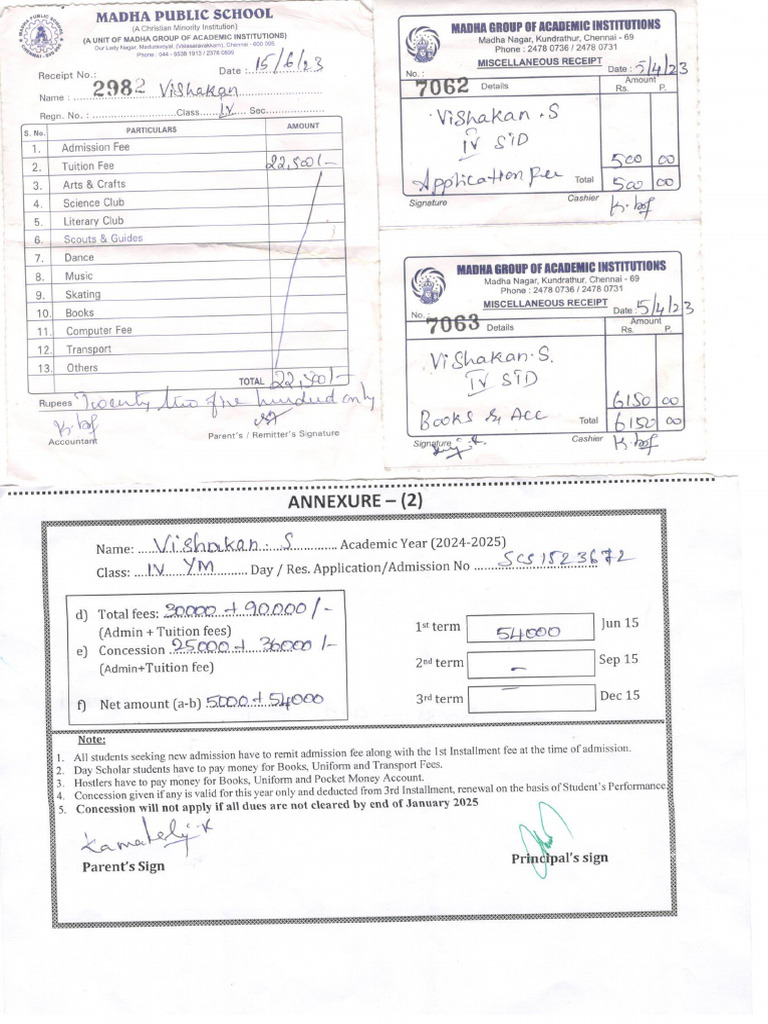 MADHA PUBLIC SCHOOL
(A Christian Minority Institution)
(A UNIT OF MADHA GROUP OF ACADEMIC INSTITUTIONS)
Our Lady Nagar, Maduravoyal, (Valasaravakkam), Chennai - 600 095
Receipt No.: 2982 Date : 15/6/23
Name : Vishakan
Regn. No. : Class IV Sec.
S. No. PARTICULARS AMOUNT
1. Admission Fee
2. Tuition Fee 22,500/-
3. Arts & Crafts
4. Science Club
5. Literary Club
6. Scouts & Guides
7. Dance
8. Music
9. Skating
10. Books
11. Computer Fee
12. Transport
13. Others
TOTAL 22,500/-
Rupees Twenty two five hundred only
Accountant Parent's / Remitter's Signature
MADHA GROUP OF ACADEMIC INSTITUTIONS
Madha Nagar, Kundrathur, Chennai - 69
Phone : 2478 0736 / 2478 0731
MISCELLANEOUS RECEIPT
No. : 7062 Details Date : 5/4/23
Amount
Rs. P.
Vishakan .S
IV STD
500 00
Application fee Total 500 00
Signature Cashier
MADHA GROUP OF ACADEMIC INSTITUTIONS
Madha Nagar, Kundrathur, Chennai - 69
Phone : 2478 0736 / 2478 0731
MISCELLANEOUS RECEIPT
No. : 7063 Details Date : 5/4/23
Amount
Rs. P.
Vishakan. S.
IV STD
6150 00
Books & Acc Total 6150 00
Signature Cashier
ANNEXURE – (2)
Name: Vishakan. S Academic Year (2024-2025)
Class: IV YM Day / Res. Application/Admission No SCS1523672
d) Total fees: 30000 + 90.000/-
(Admin + Tuition fees)
e) Concession 25000 + 36000/-
(Admin+Tuition fee)
f) Net amount (a-b) 5000 + 54000
1st term 54000 Jun 15
2nd term - Sep 15
3rd term - Dec 15
Note:
1. All students seeking new admission have to remit admission fee along with the 1st Installment fee at the time of admission.
2. Day Scholar students have to pay money for Books, Uniform and Transport Fees.
3. Hostlers have to pay money for Books, Uniform and Pocket Money Account.
4. Concession given if any is valid for this year only and deducted from 3rd Installment, renewal on the basis of Student's Performance
5. Concession will not apply if all dues are not cleared by end of January 2025
Parent's Sign Principal's sign